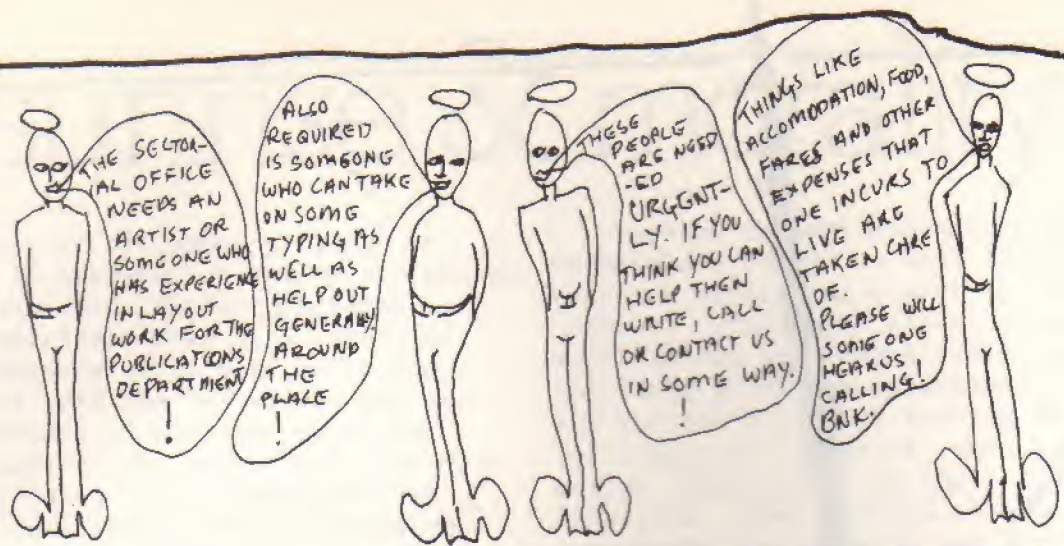 THE SECTOR-
IAL OFFICE
NEEDS AN
ARTIST OR
SOMEONE WHO
HAS EXPERIENCE
IN LAYOUT
WORK FOR THE
PUBLICATIONS
DEPARTMENT
!
ALSO
REQUIRED
IS SOMEONE
WHO CAN TAKE
ON SOME
TYPING AS
WELL AS
HELP OUT
GENERALLY
AROUND
THE
PLACE
!
THESE
PEOPLE
ARE NEED
-ED
URGENT-
LY. IF YOU
THINK YOU CAN
HELP THEN
WRITE, CALL
OR CONTACT US
IN SOME WAY.
!
THINGS LIKE
ACCOMODATION, FOOD,
FARES AND OTHER
EXPENSES THAT
ONE INCURS TO
LIVE ARE
TAKEN CARE
OF.
PLEASE WILL
SOMEONE
HEAR US
CALLING!
BNK.